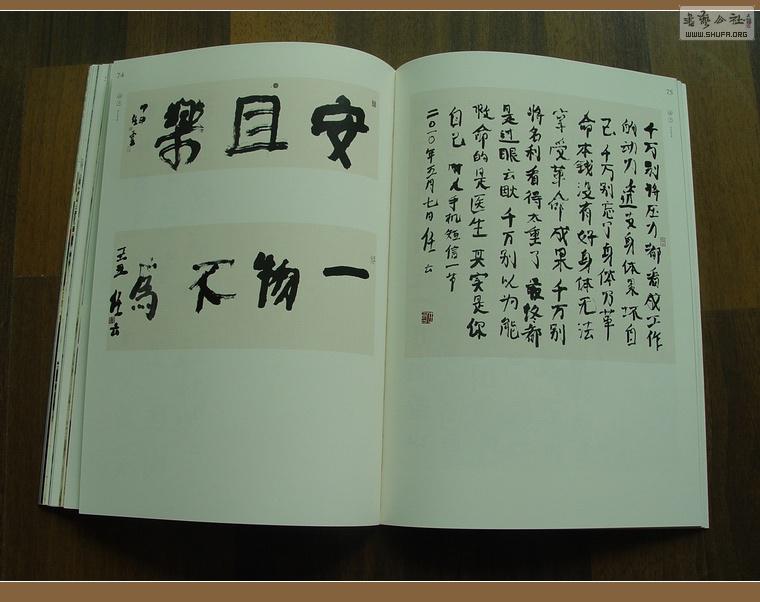 書法公社
WWW.SHUFA.ORG
74
安且樂
一物不為
75
千万别将压力都看成工作
的动力 透支身体累坏自
己 千万别忘了身体乃革
命本钱没有好身体无法
享受革命成果 千万别
将名利看得太重了 最终都
是过眼云烟 千万别以为能
救命的是医生 其实是你
自己 友人手机短信一节
二〇一〇年五月七日